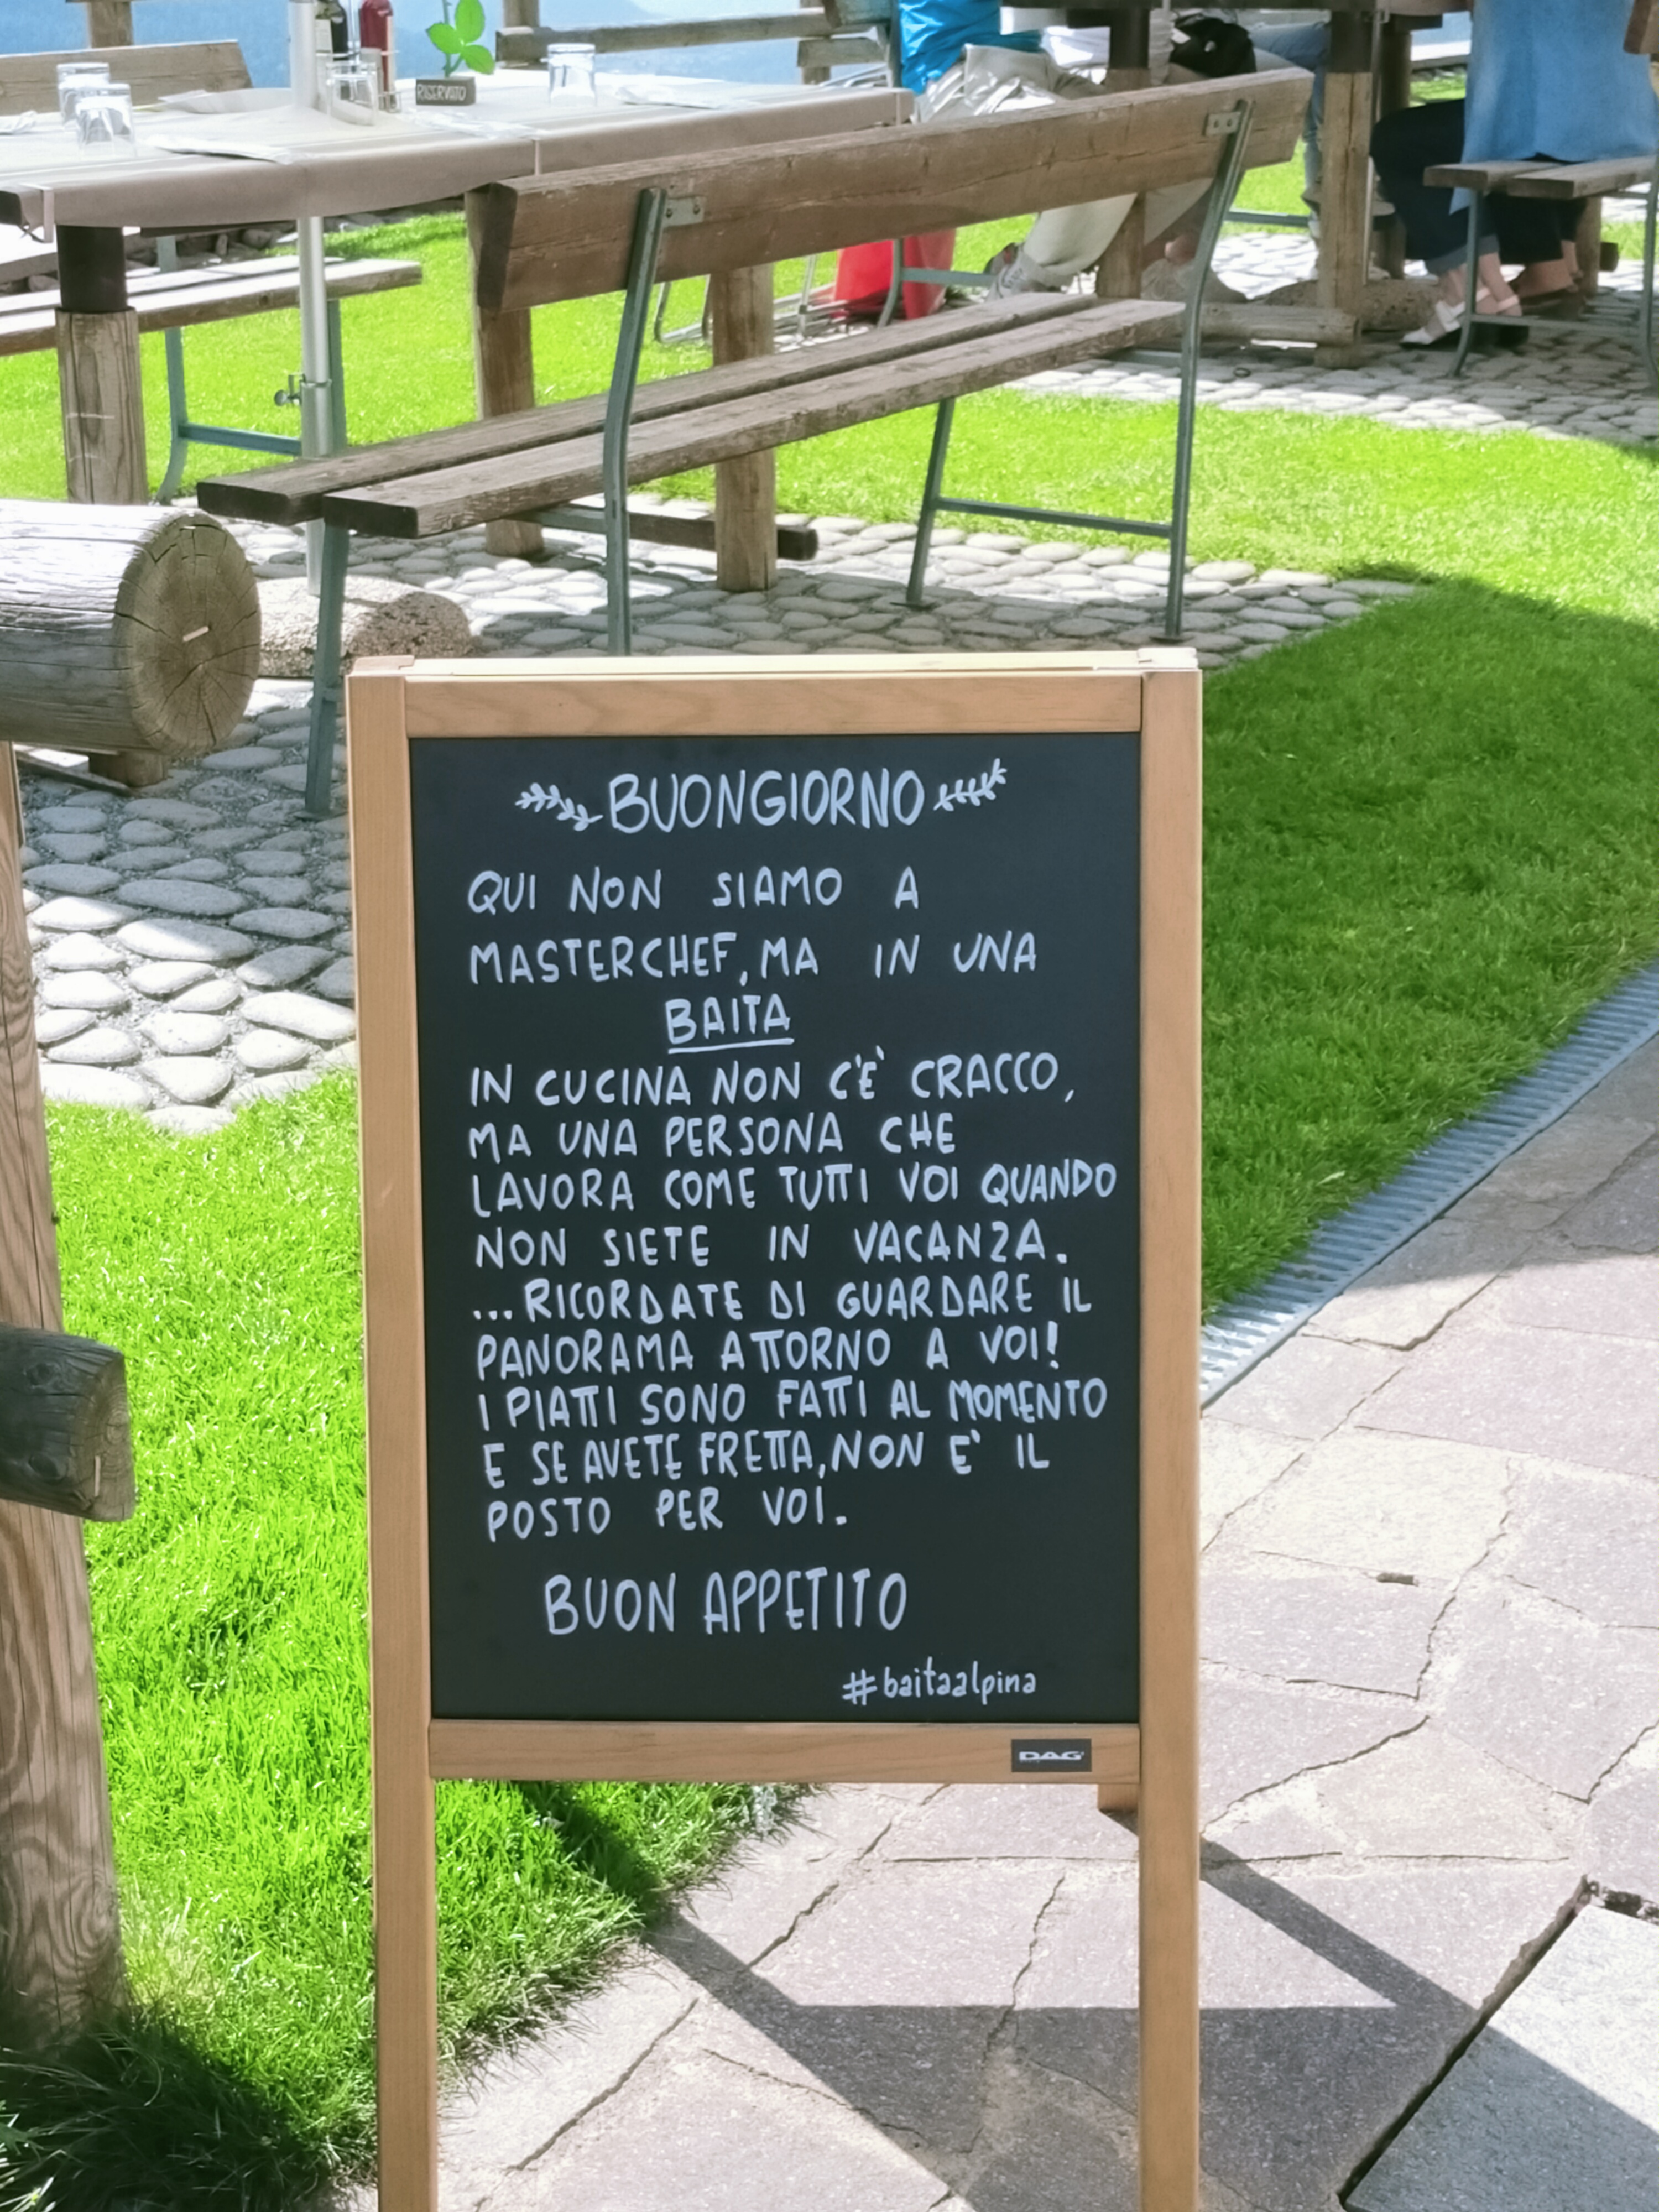 RISERVATO
BUONGIORNO
QUI NON SIAMO A
MASTERCHEF, MA IN UNA
BAITA
IN CUCINA NON C'E' CRACCO,
MA UNA PERSONA CHE
LAVORA COME TUTTI VOI QUANDO
NON SIETE IN VACANZA.
...RICORDATE DI GUARDARE IL
PANORAMA ATTORNO A VOI!
I PIATTI SONO FATTI AL MOMENTO
E SE AVETE FRETTA, NON E' IL
POSTO PER VOI.
BUON APPETITO
#baitaalpina
DAG